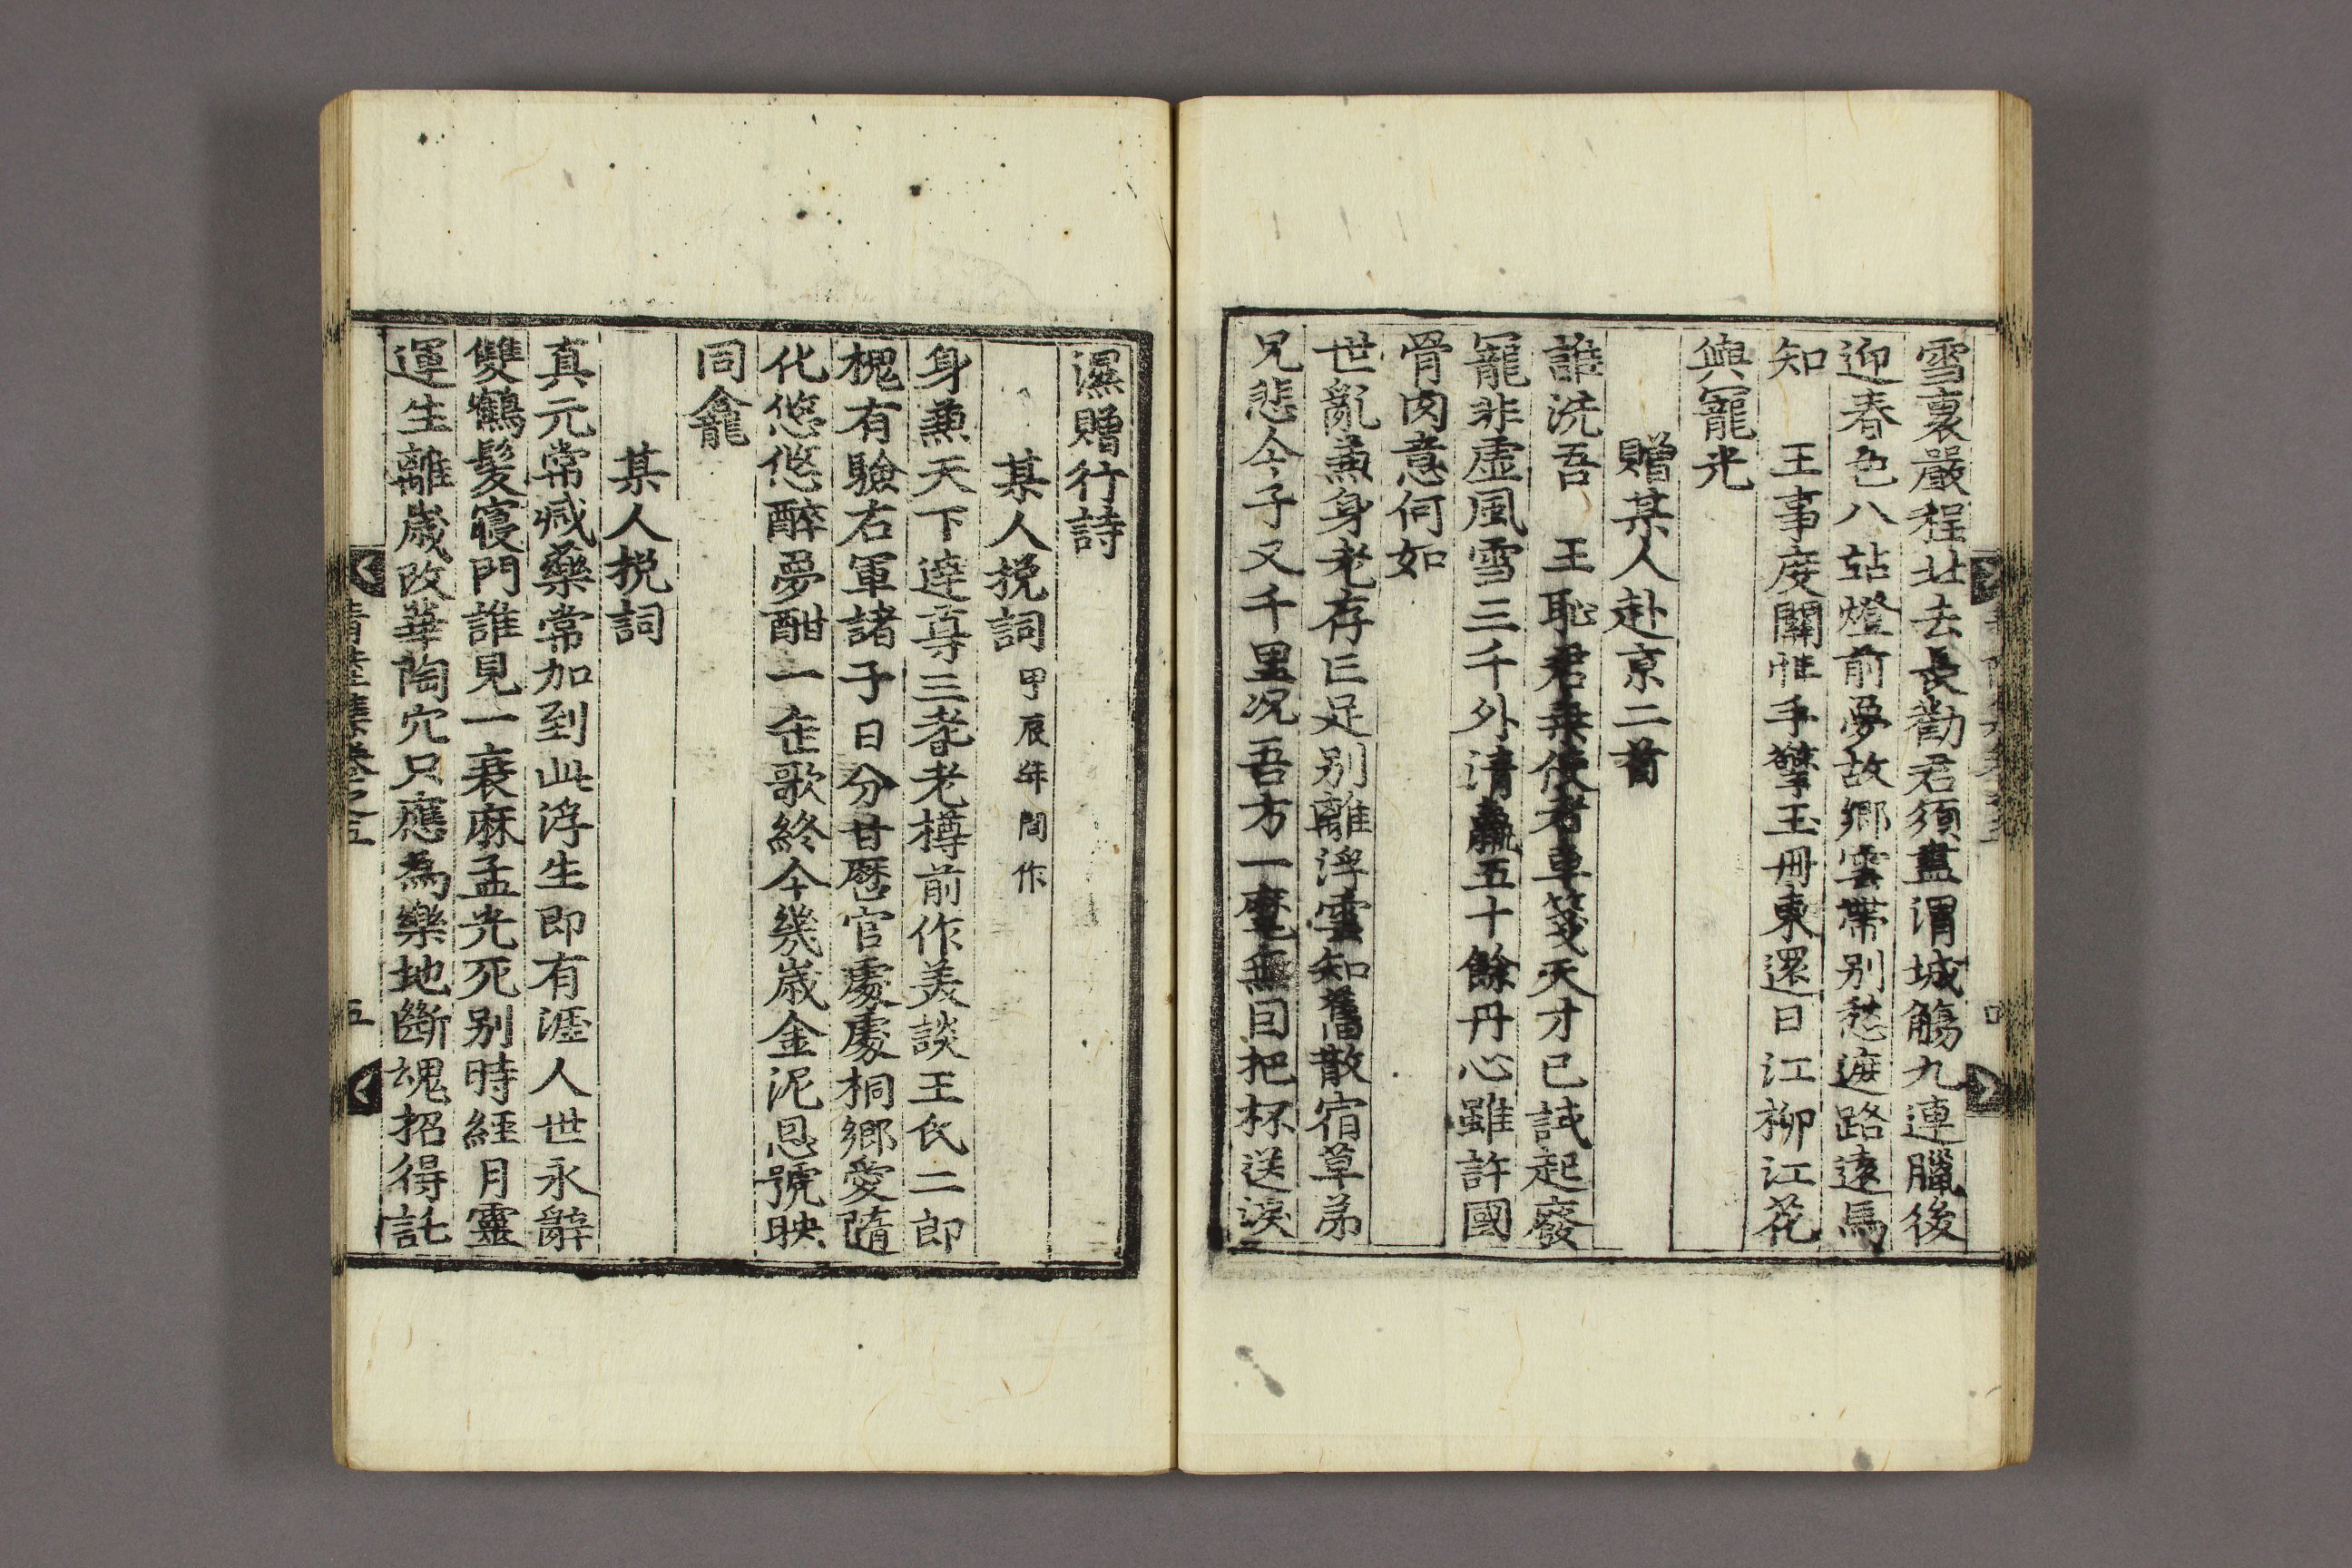 雪裏嚴程北去長勸君須盡渭城觴九連臘後
迎春色八站燈前夢故鄉雲帶別愁遮路遠馬
知　王事度關忙手擎玉冊東還日江柳江花
與寵光
贈某人赴京二首
誰洗吾　王恥君乘使者車箋天才已試起廢
寵非虛風雪三千外清羸五十餘丹心雖許國
骨肉意何如
世亂兼身老存亡足別離浮雲知舊散宿草弟
兄悲今子又千里況吾方一麾無回把杯送淚
濕贈行詩
某人挽詞 甲辰年間作
身兼天下達尊三耆老樽前作美談王氏二郎
槐有驗右軍諸子日分甘曆官處處桐鄉愛隨
化悠悠醉夢酣一缶歌終今幾歲金泥恩號映
同龕
某人挽詞
真元常减藥常加到此浮生即有涯人世永辭
雙鶴髮寢門誰見一衰麻孟光死別時經月靈
運生離歲改華陶穴只應為樂地斷魂招得託
五